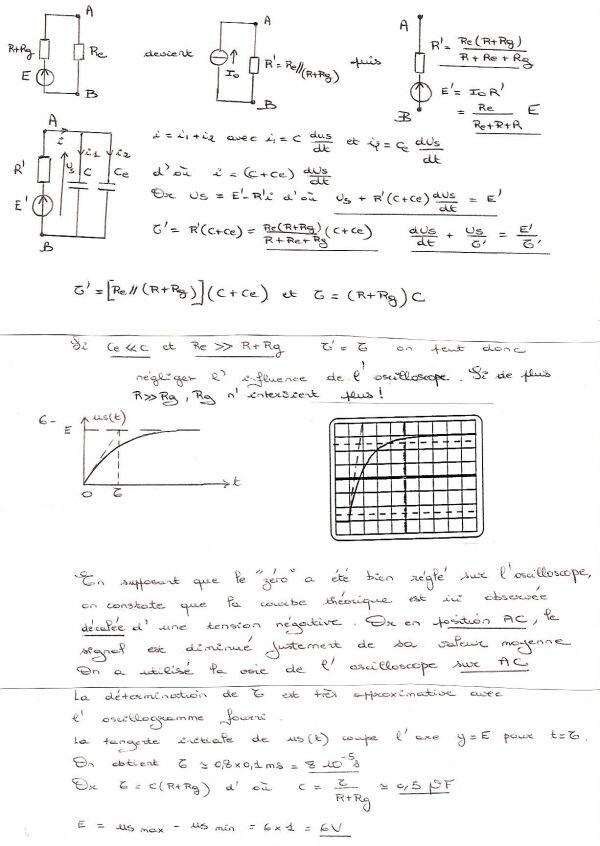 A
R+Rg
Re
E
B
devient
A
I₀
R' = Re//(R+Rg)
B
puis
A
R' = Re(R+Rg) / R+Re+Rg
E' = I₀R'
= Re / Re+R+R E
B
A
i
i1
i2
R'
us
C
Ce
E'
B
i = i₁+i₂ avec i₁ = C dus/dt et i₂ = Ce dus/dt
d'où i = (C+Ce) dus/dt
Or us = E'-R'i d'où us + R'(C+Ce) dus/dt = E'
τ' = R'(C+Ce) = Re(R+Rg) / R+Re+Rg (C+Ce) dus/dt + us/τ' = E'/τ'
τ' = [Re//(R+Rg)](C+Ce) et τ = (R+Rg)C
Si Ce≪C et Re ≫ R+Rg τ' = τ on peut donc
négliger l'influence de l'oscilloscope. Si de plus
R≫Rg, Rg n'intervient plus !
6-
us(t)
E
O
τ
t
En supposant que le "zéro" a été bien réglé sur l'oscilloscope,
on constate que la courbe théorique est ici observée
décalée d'une tension négative. Or en position AC, le
signal est diminué justement de sa valeur moyenne
On a utilisé la voie de l'oscilloscope sur AC
La détermination de τ est très approximative avec
l'oscillogramme fourni.
La tangente initiale de us(t) coupe l'axe y=E pour t=τ.
On obtient τ ≃ 0,8×0,1ms = 8 10⁻⁵s
Or τ = C(R+Rg) d'où C = τ / R+Rg ≃ 0,5 μF
E = us max - us min = 6×1 = 6V